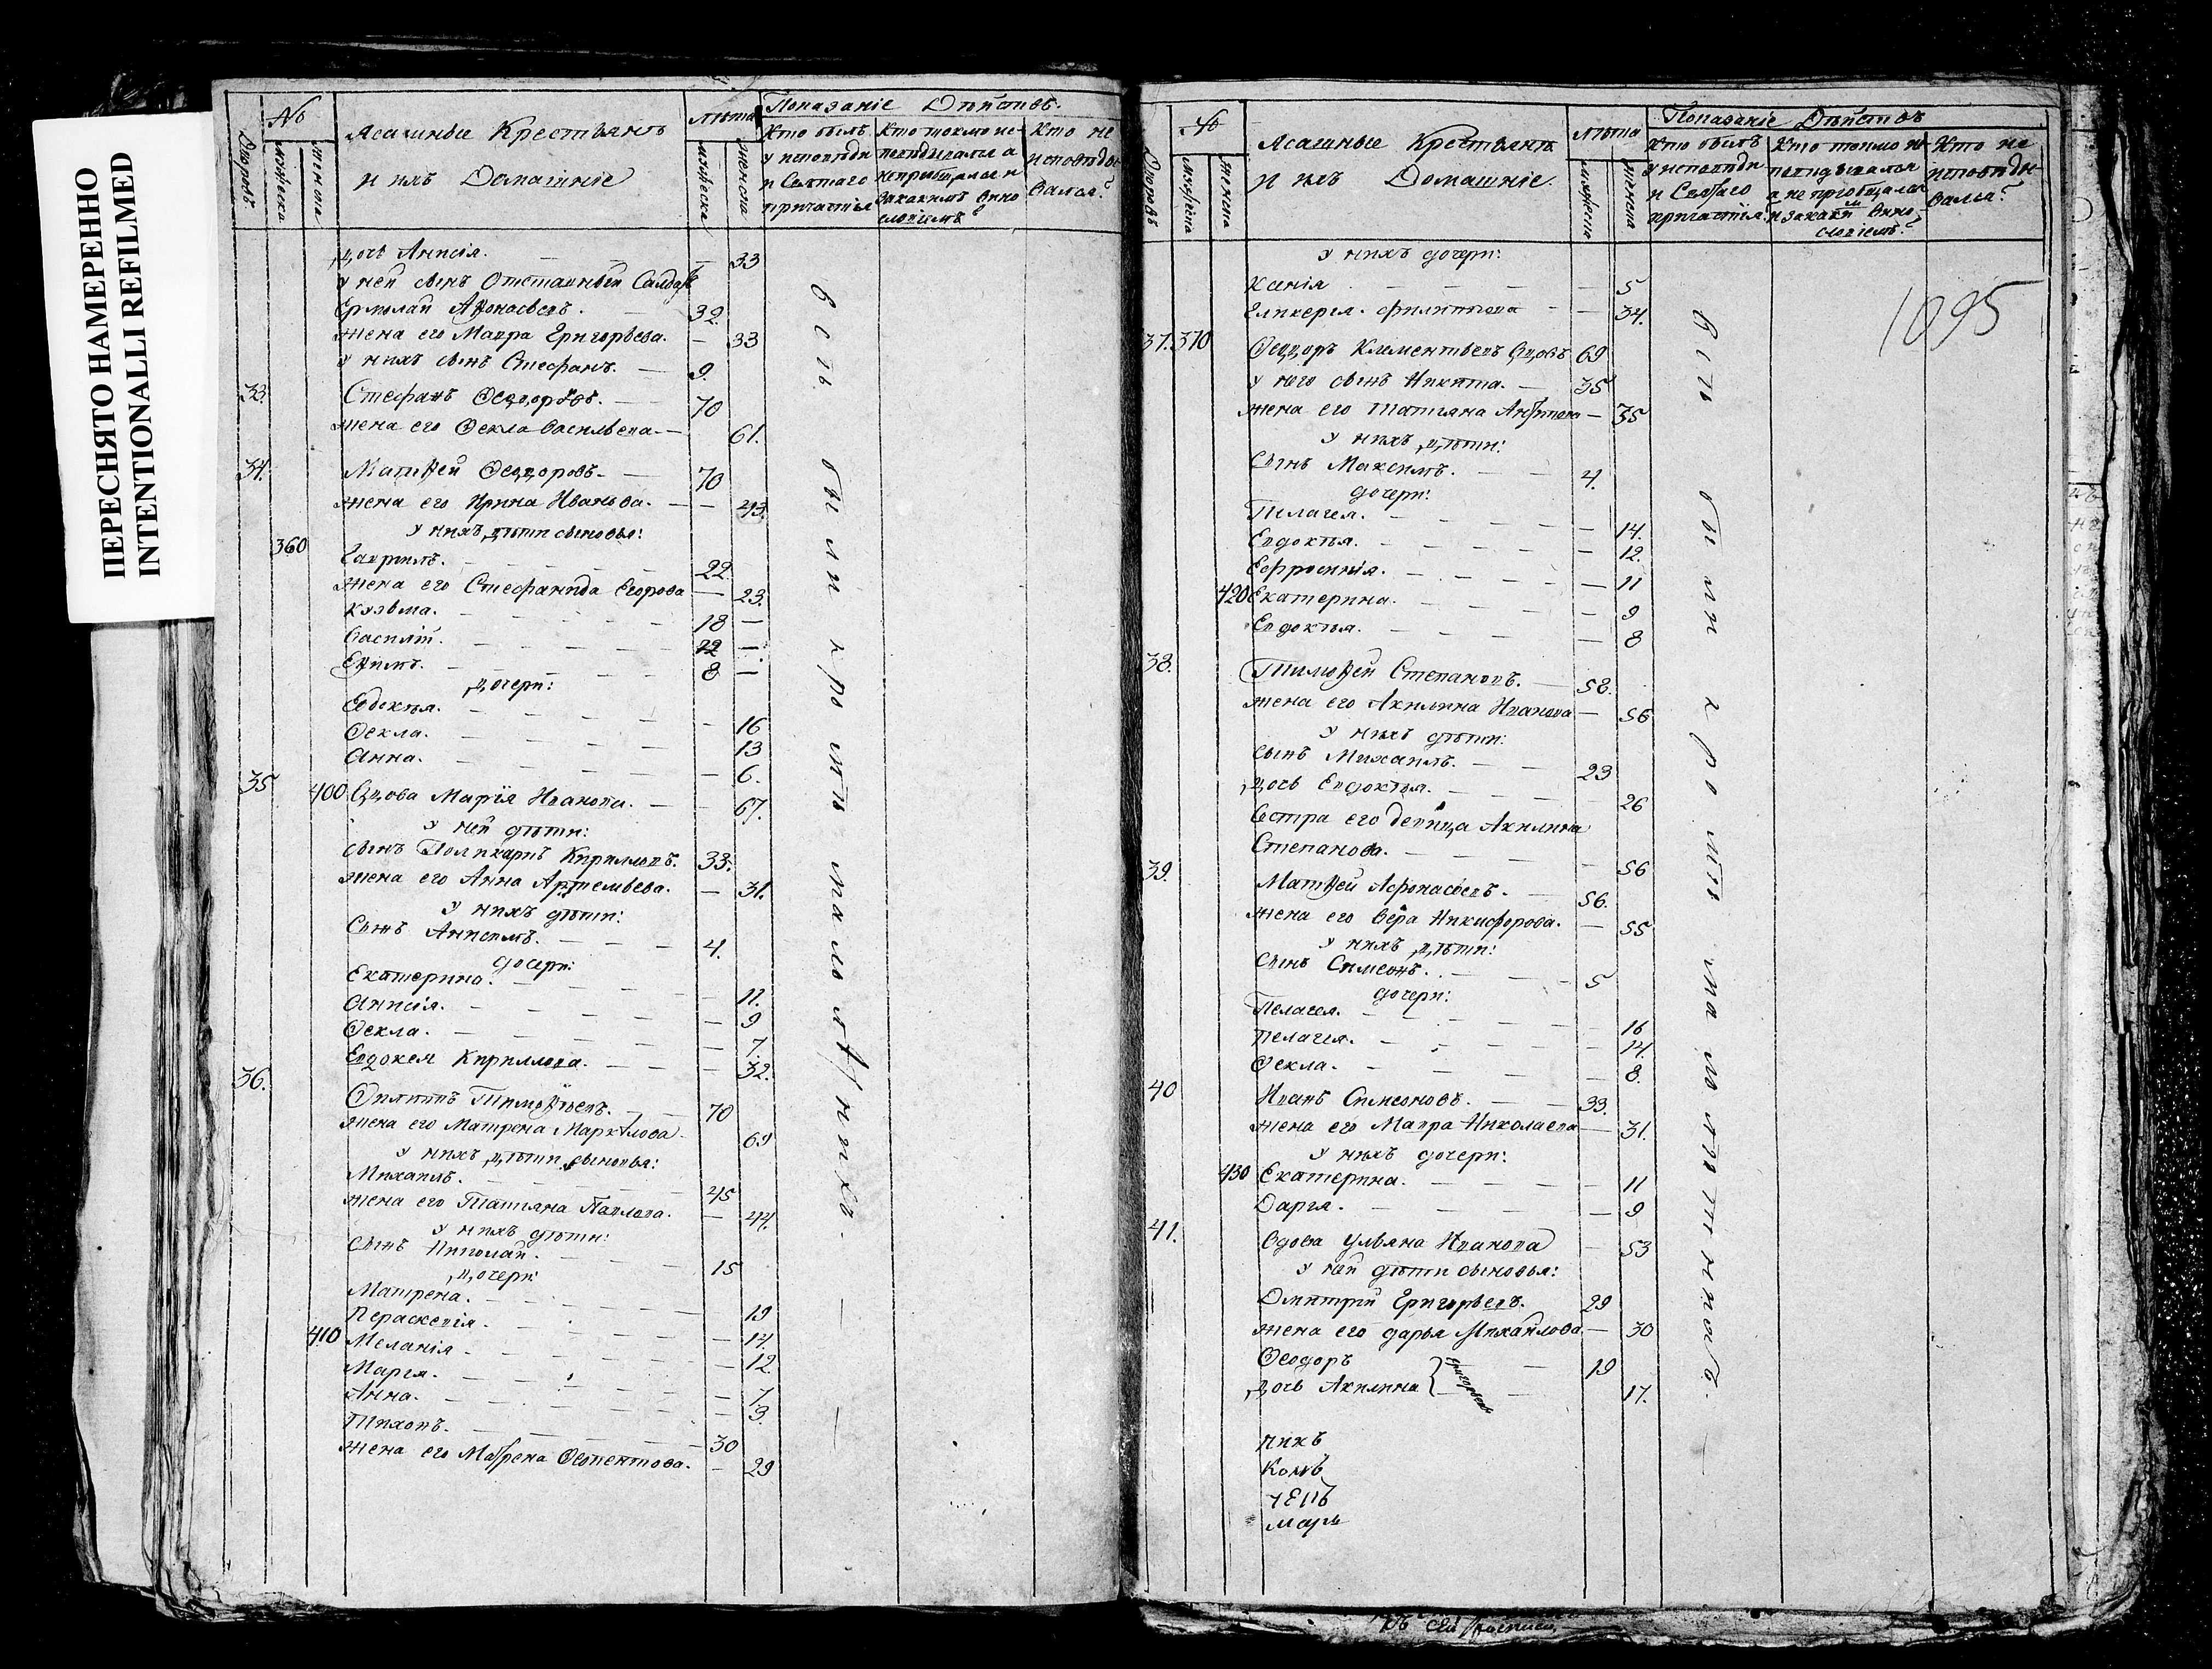 ПЕРЕСНЯТО НАМЕРЕННО
INTENTIONALLI REFILMED
№
Дворовъ
мужеска
женска
Ясашные Крестьянъ
и ихъ Домашніе
Лѣта
мужеска
женска
Показаніе Дѣйствъ.
Кто былъ у исповѣди и Святаго причастія
Кто токмо исповѣдывался а не причащался и за какимъ виннословіемъ?
Кто не исповѣдывался?
дочь Анисія. — 33
у ней сынъ Отставный Салдатъ
Ермолай Аѳонасьевъ. — 32.
жена его Мавра Григорьева. — 33
у нихъ сынъ Стефанъ. — 9.
33. Стефанъ Ѳеодоровъ. — 70
жена его Ѳекла Васильева — 61.
34. Матѳей Ѳеодоровъ. — 70
жена его Ирина Иванова. — 43.
у нихъ дѣти сыновья:
360 Гаврилъ. — 22.
жена его Стефанида Егорова — 23.
Кузьма. — 18 —
Василій. — 12 —
Еѳимъ. — 8 —
дочери:
Евдокѣя. — 16
Ѳекла. — 13
Анна. — 6.
35 400 Вдова Марія Иванова. — 67.
у ней дѣти:
сынъ Поликарпъ Кирилловъ. 33.
жена его Анна Артемьева. — 31.
у нихъ дѣти:
Сынъ Анисимъ. — 4.
дочери:
Екатерина. — 11.
Анисія. — 9
Ѳекла. — 7.
Евдокея Кириллова. — 32.
36. Филиппъ Тимоѳѣевъ. — 70
жена его Матрена Маркелова — 69
у нихъ дѣти сыновья:
Михаилъ. — 45
жена его Татіяна Павлова. — 44.
у нихъ дѣти:
Сынъ Николай. — 15
дочери
Матрена. — 19
Пераскевія. — 14.
410 Меланія — 12
Марья. — 7
Анна. — 3.
Тихонъ. — 30
жена его Матрена Ѳеопентова. — 29
всѣ были кромѣ малолѣтнихъ. —
№
Дворовъ
мужеска
женска
Ясашные Крестьянъ
и ихъ Домашніе.
Лѣта
мужеска
женска
Показаніе Дѣйствъ
Кто былъ у исповѣди и Святаго причастія.
Кто токмо исповѣдывался а не причащался и за какимъ виннословіемъ?
Кто не исповѣдывался?
1095
у нихъ дочери:
Ксенія — 5
Гликерья. Филиппова — 34.
37. 370 Ѳеодоръ Климентьевъ Вдовъ 69
у него сынъ Никита. — 35
жена его Татіяна Антипова — 35
у нихъ дѣти:
Сынъ Максимъ. — 4.
дочери:
Пилагея. — 14.
Евдокѣя. — 12.
Ефросинія. — 11
420 Екатерина. — 9
Евдокѣя. — 8
38. Тимоѳей Степановъ. — 58.
жена его Акилина Иванова — 56
у нихъ дѣти:
Сынъ Михаилъ. — 23
дочь Евдокѣя. — 26
Сестра его девица Акилина
Степанова. — 56
39. Матѳей Афонасьевъ. — 56.
жена его Вера Никифорова. — 55
у нихъ дѣти:
Сынъ Симеонъ. — 5
дочери:
Пелагея. — 16
Пелагея. — 14.
Ѳекла. — 8.
40 Иванъ Симеоновъ. — 33.
жена его Мавра Николаева — 31.
у нихъ дочери:
430 Екатерина. — 11
Дарья. — 9
41. Вдова Ульяна Иванова — 53
у ней дѣти сыновья:
Дмитрій Григорьевъ. 29
жена его дарья Михайлова — 30
Ѳеодоръ — 19
дочь Акилина — 17.
всѣ были кромѣ малолѣтнихъ. —